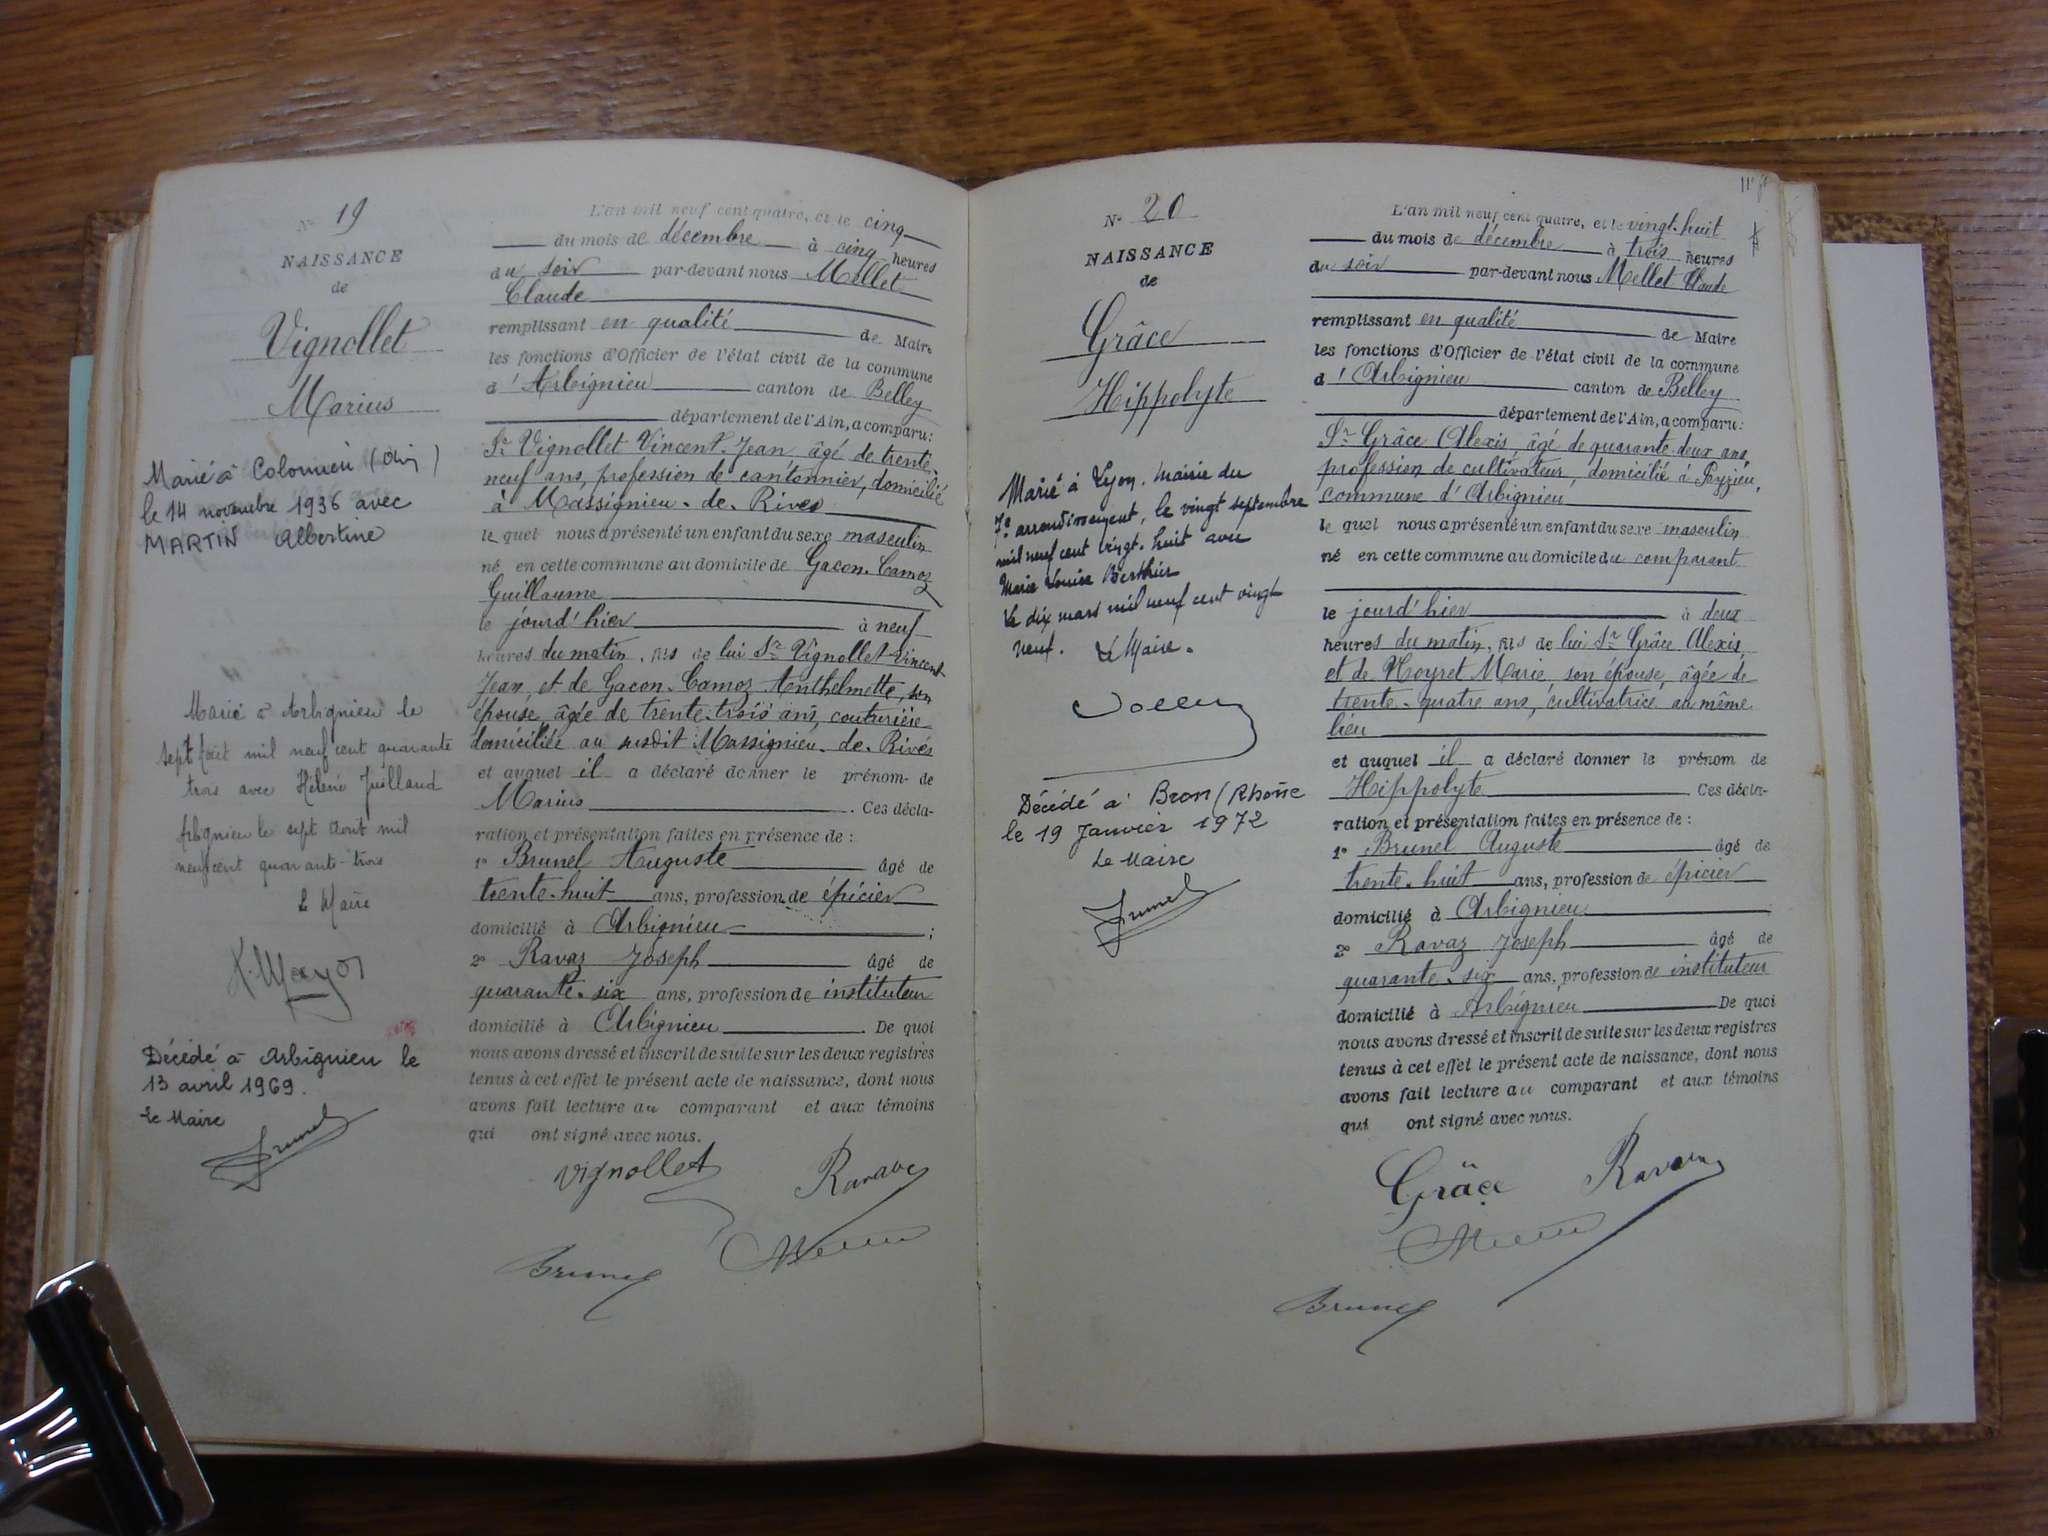 N° 19
NAISSANCE
de
Vignollet
Marius
Marié à Colomieu (Ain)
le 14 novembre 1936 avec
MARTIN Albertine
Marié à Arbignieu le
sept août mil neuf cent quarante
trois avec Hélène Juilland
Arbignieu le sept août mil
neuf cent quarante-trois
Le Maire
Décédé à Arbignieu le
13 avril 1969.
Le Maire
Brunel
L'an mil neuf cent quatre, et le cinq
du mois de décembre à cinq heures
du soir par-devant nous Mellet
Claude
remplissant en qualité de Maire
les fonctions d'Officier de l'état civil de la commune
d'Arbignieu canton de Belley
département de l'Ain, a comparu:
Sr Vignollet Vincent Jean âgé de trente-
neuf ans, profession de cantonnier, domicilié
à Massignieu-de-Rives
le quel nous a présenté un enfant du sexe masculin
né en cette commune au domicile de Gacon-Camoz
Guillaume
le jourd'hier à neuf
heures du matin, fils de lui Sr Vignollet Vincent
Jean, et de Gacon-Camoz Anthelmette, son
épouse, âgée de trente-trois ans, couturière
domiciliés au susdit Massignieu-de-Rives
et auquel il a déclaré donner le prénom de
Marius. Ces décla-
ration et présentation faites en présence de :
1° Brunel Auguste âgé de
trente-huit ans, profession de épicier
domicilié à Arbignieu ;
2° Ravaz Joseph âgé de
quarante-six ans, profession de instituteur
domicilié à Arbignieu. De quoi
nous avons dressé et inscrit de suite sur les deux registres
tenus à cet effet le présent acte de naissance, dont nous
avons fait lecture au comparant et aux témoins
qui ont signé avec nous.
Vignollet Ravaz
Brunel Mellet
N° 20
NAISSANCE
de
Grâce
Hippolyte
Marié à Lyon, mairie du
7e arrondissement, le vingt septembre
mil neuf cent vingt-huit avec
Marie Louise Berthier
Le dix mars mil neuf cent vingt
neuf. Le Maire.
Décédé à Bron (Rhône
le 19 Janvier 1972
Le Maire
Brunel
11
L'an mil neuf cent quatre, et le vingt-huit
du mois de décembre à trois heures
du soir par-devant nous Mellet Claude
remplissant en qualité de Maire
les fonctions d'Officier de l'état civil de la commune
d'Arbignieu canton de Belley
département de l'Ain, a comparu:
Sr Grâce Alexis, âgé de quarante-deux ans,
profession de cultivateur, domicilié à Peyzieu,
commune d'Arbignieu
le quel nous a présenté un enfant du sexe masculin
né en cette commune au domicile du comparant
le jourd'hier à deux
heures du matin, fils de lui Sr Grâce Alexis,
et de Noyret Marie, son épouse, âgée de
trente-quatre ans, cultivatrice au même
lieu
et auquel il a déclaré donner le prénom de
Hippolyte. Ces décla-
ration et présentation faites en présence de :
1° Brunel Auguste âgé de
trente-huit ans, profession de épicier
domicilié à Arbignieu
2° Ravaz Joseph âgé de
quarante-six ans, profession de instituteur
domicilié à Arbignieu De quoi
nous avons dressé et inscrit de suite sur les deux registres
tenus à cet effet le présent acte de naissance, dont nous
avons fait lecture au comparant et aux témoins
qui ont signé avec nous.
Grâce Ravaz
Mellet
Brunel